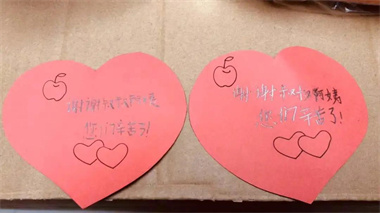 谢谢叔叔阿姨
您们辛苦了!
谢谢叔叔阿姨
您们辛苦了!